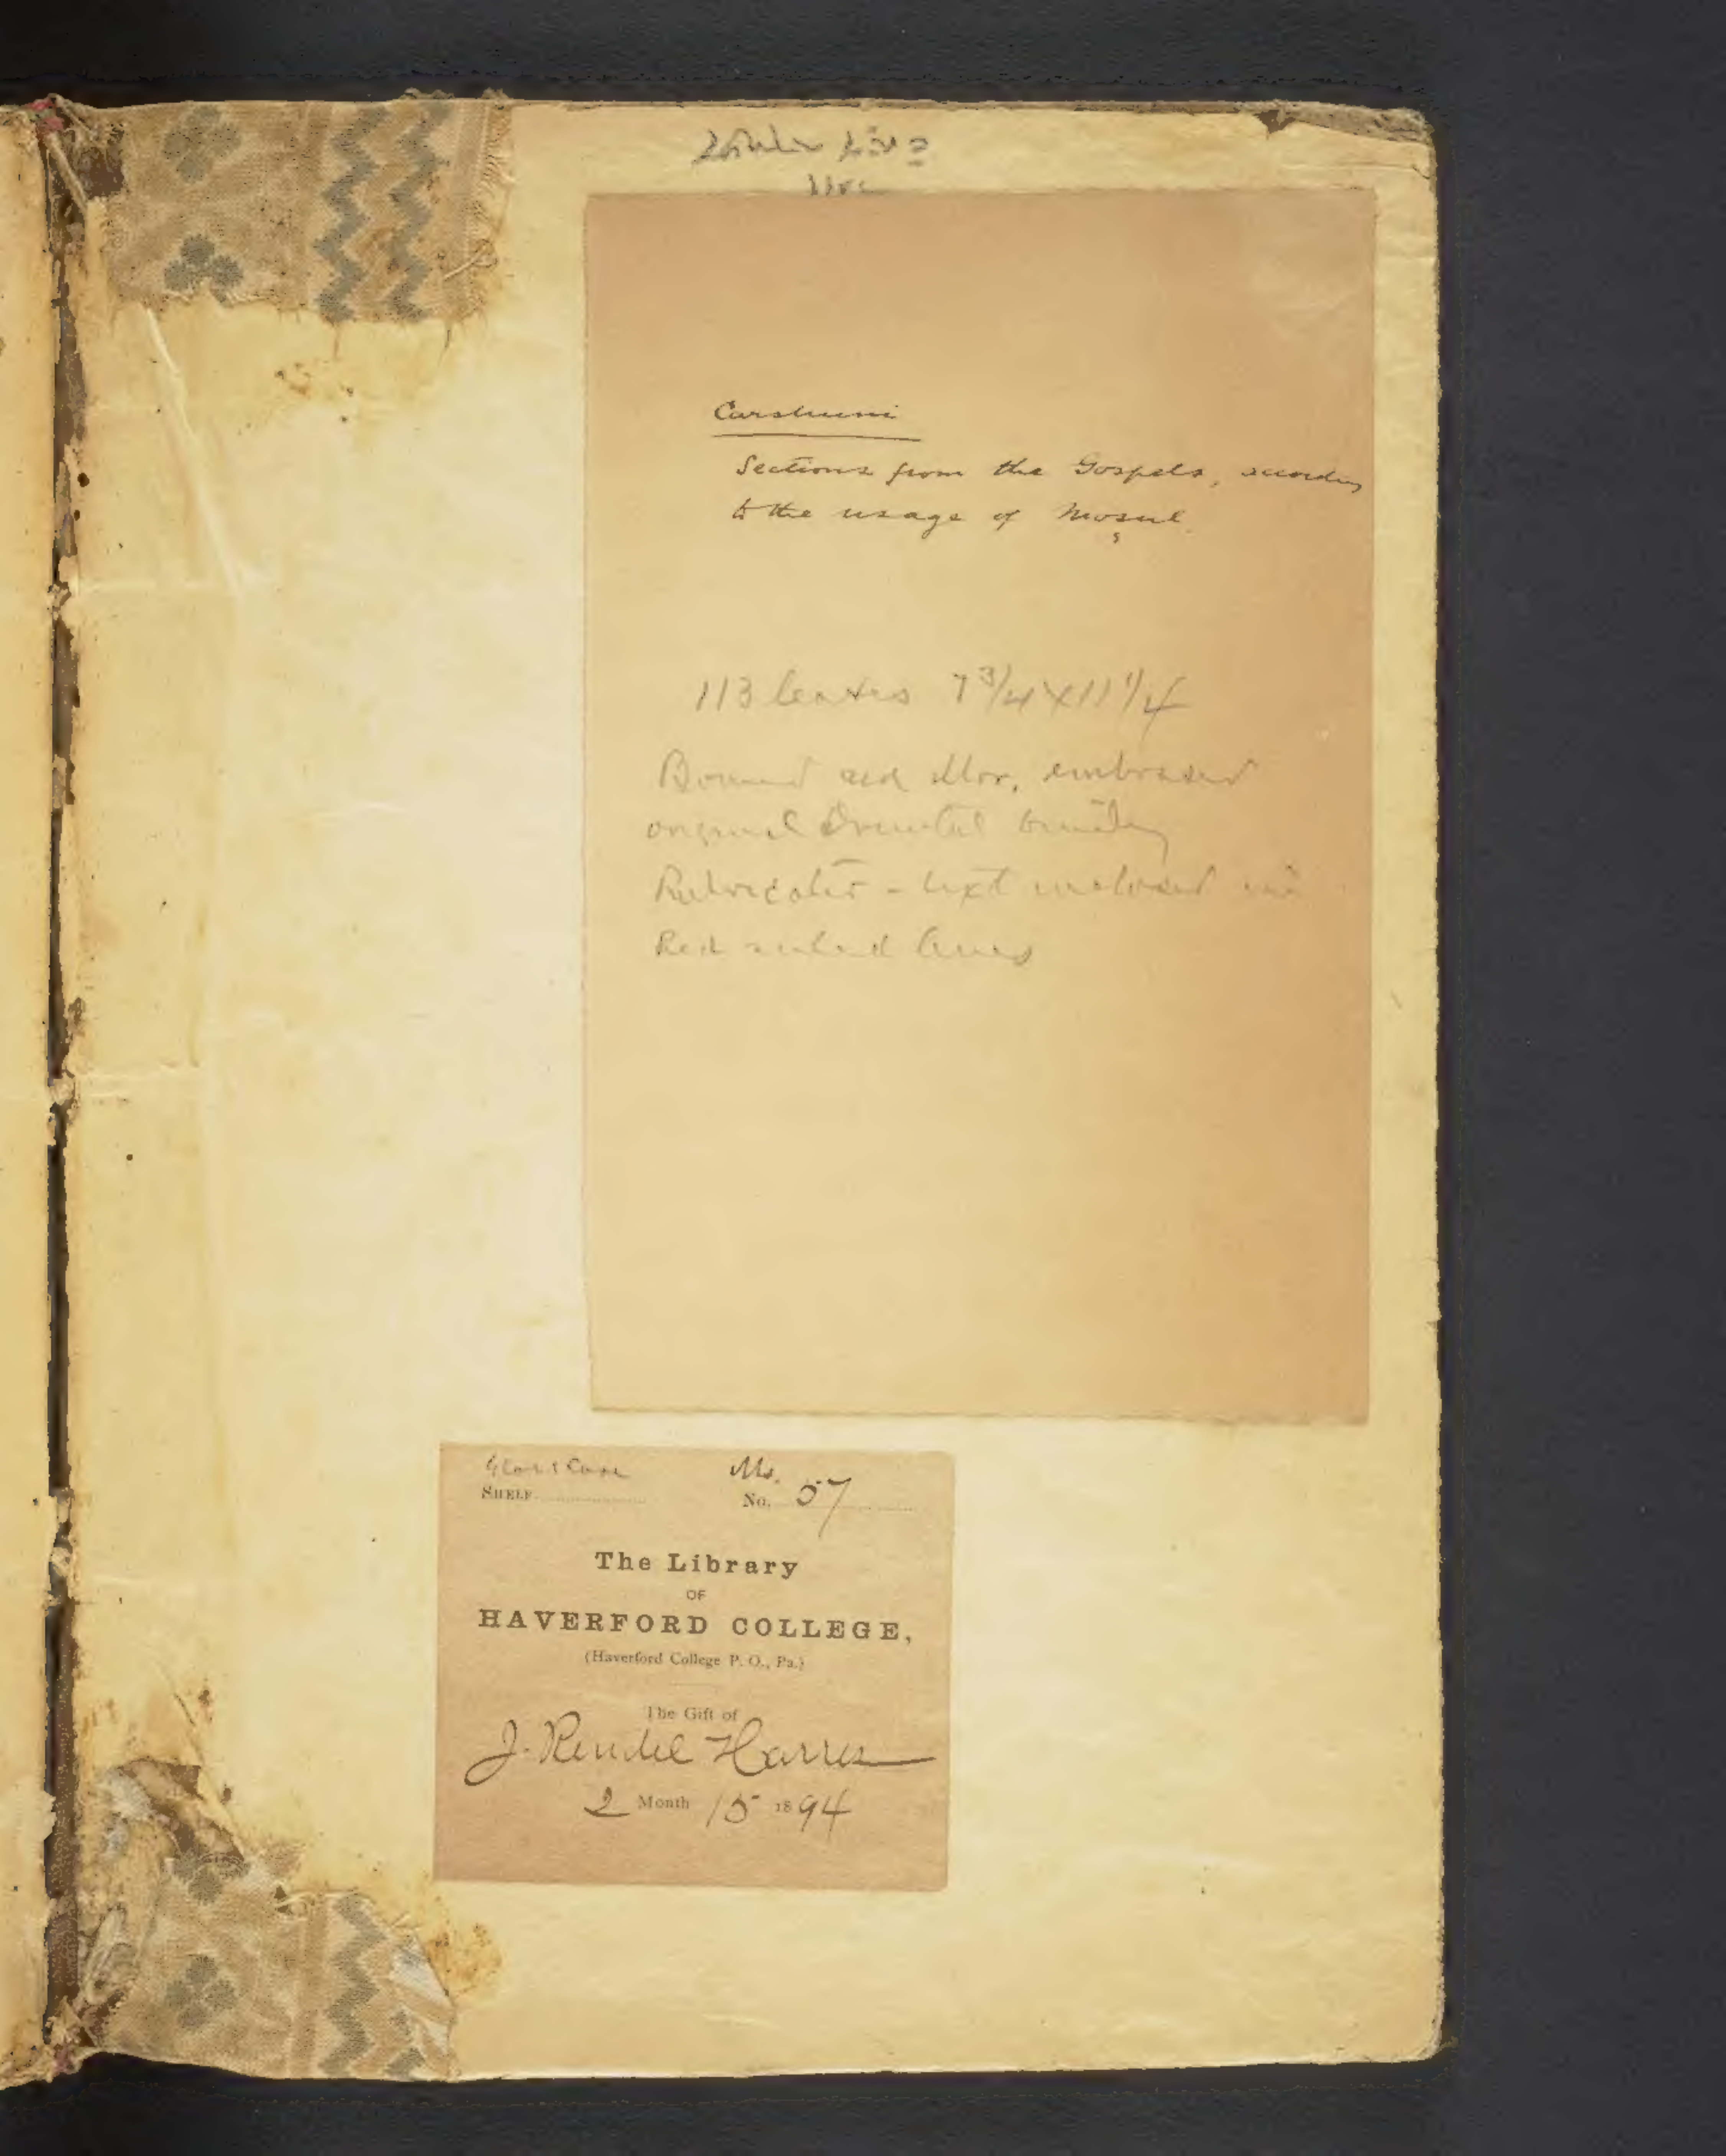 Carshuni
Sections from the Gospels, according
to the usage of Mosul.
113 leaves 7 3/4 X 11 1/4
Bound red Mor, embossed
original Oriental binding
Rubricated - text inclosed in
Red ruled lines
Glass Case
Ms.
SHELF
No. 57
The Library
OF
HAVERFORD COLLEGE,
(Haverford College P. O., Pa.)
The Gift of
J. Rendel Harris
2 Month 15 1894